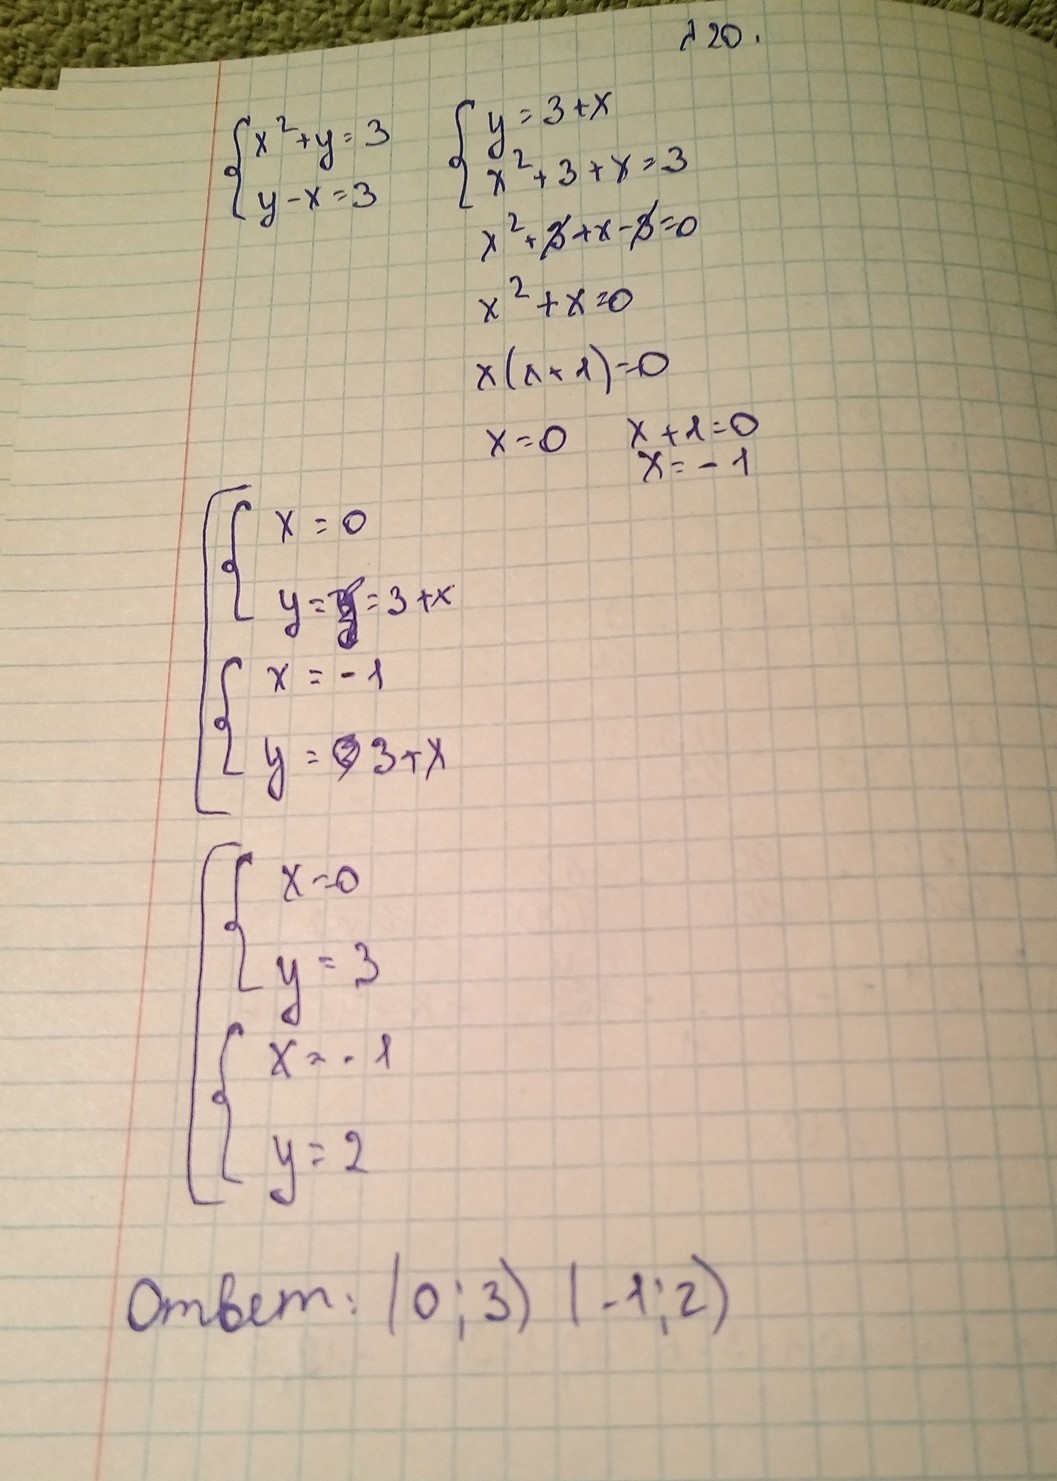 20.
x²+y=3
y-x=3
y=3+x
x²+3+x=3
x²+3+x-3=0
x²+x=0
x(x+1)=0
x=0 x+1=0
x=-1
x=0
y= =3+x
x=-1
y= 3+x
x=0
y=3
x=-1
y=2
Ответ: (0;3) (-1;2)